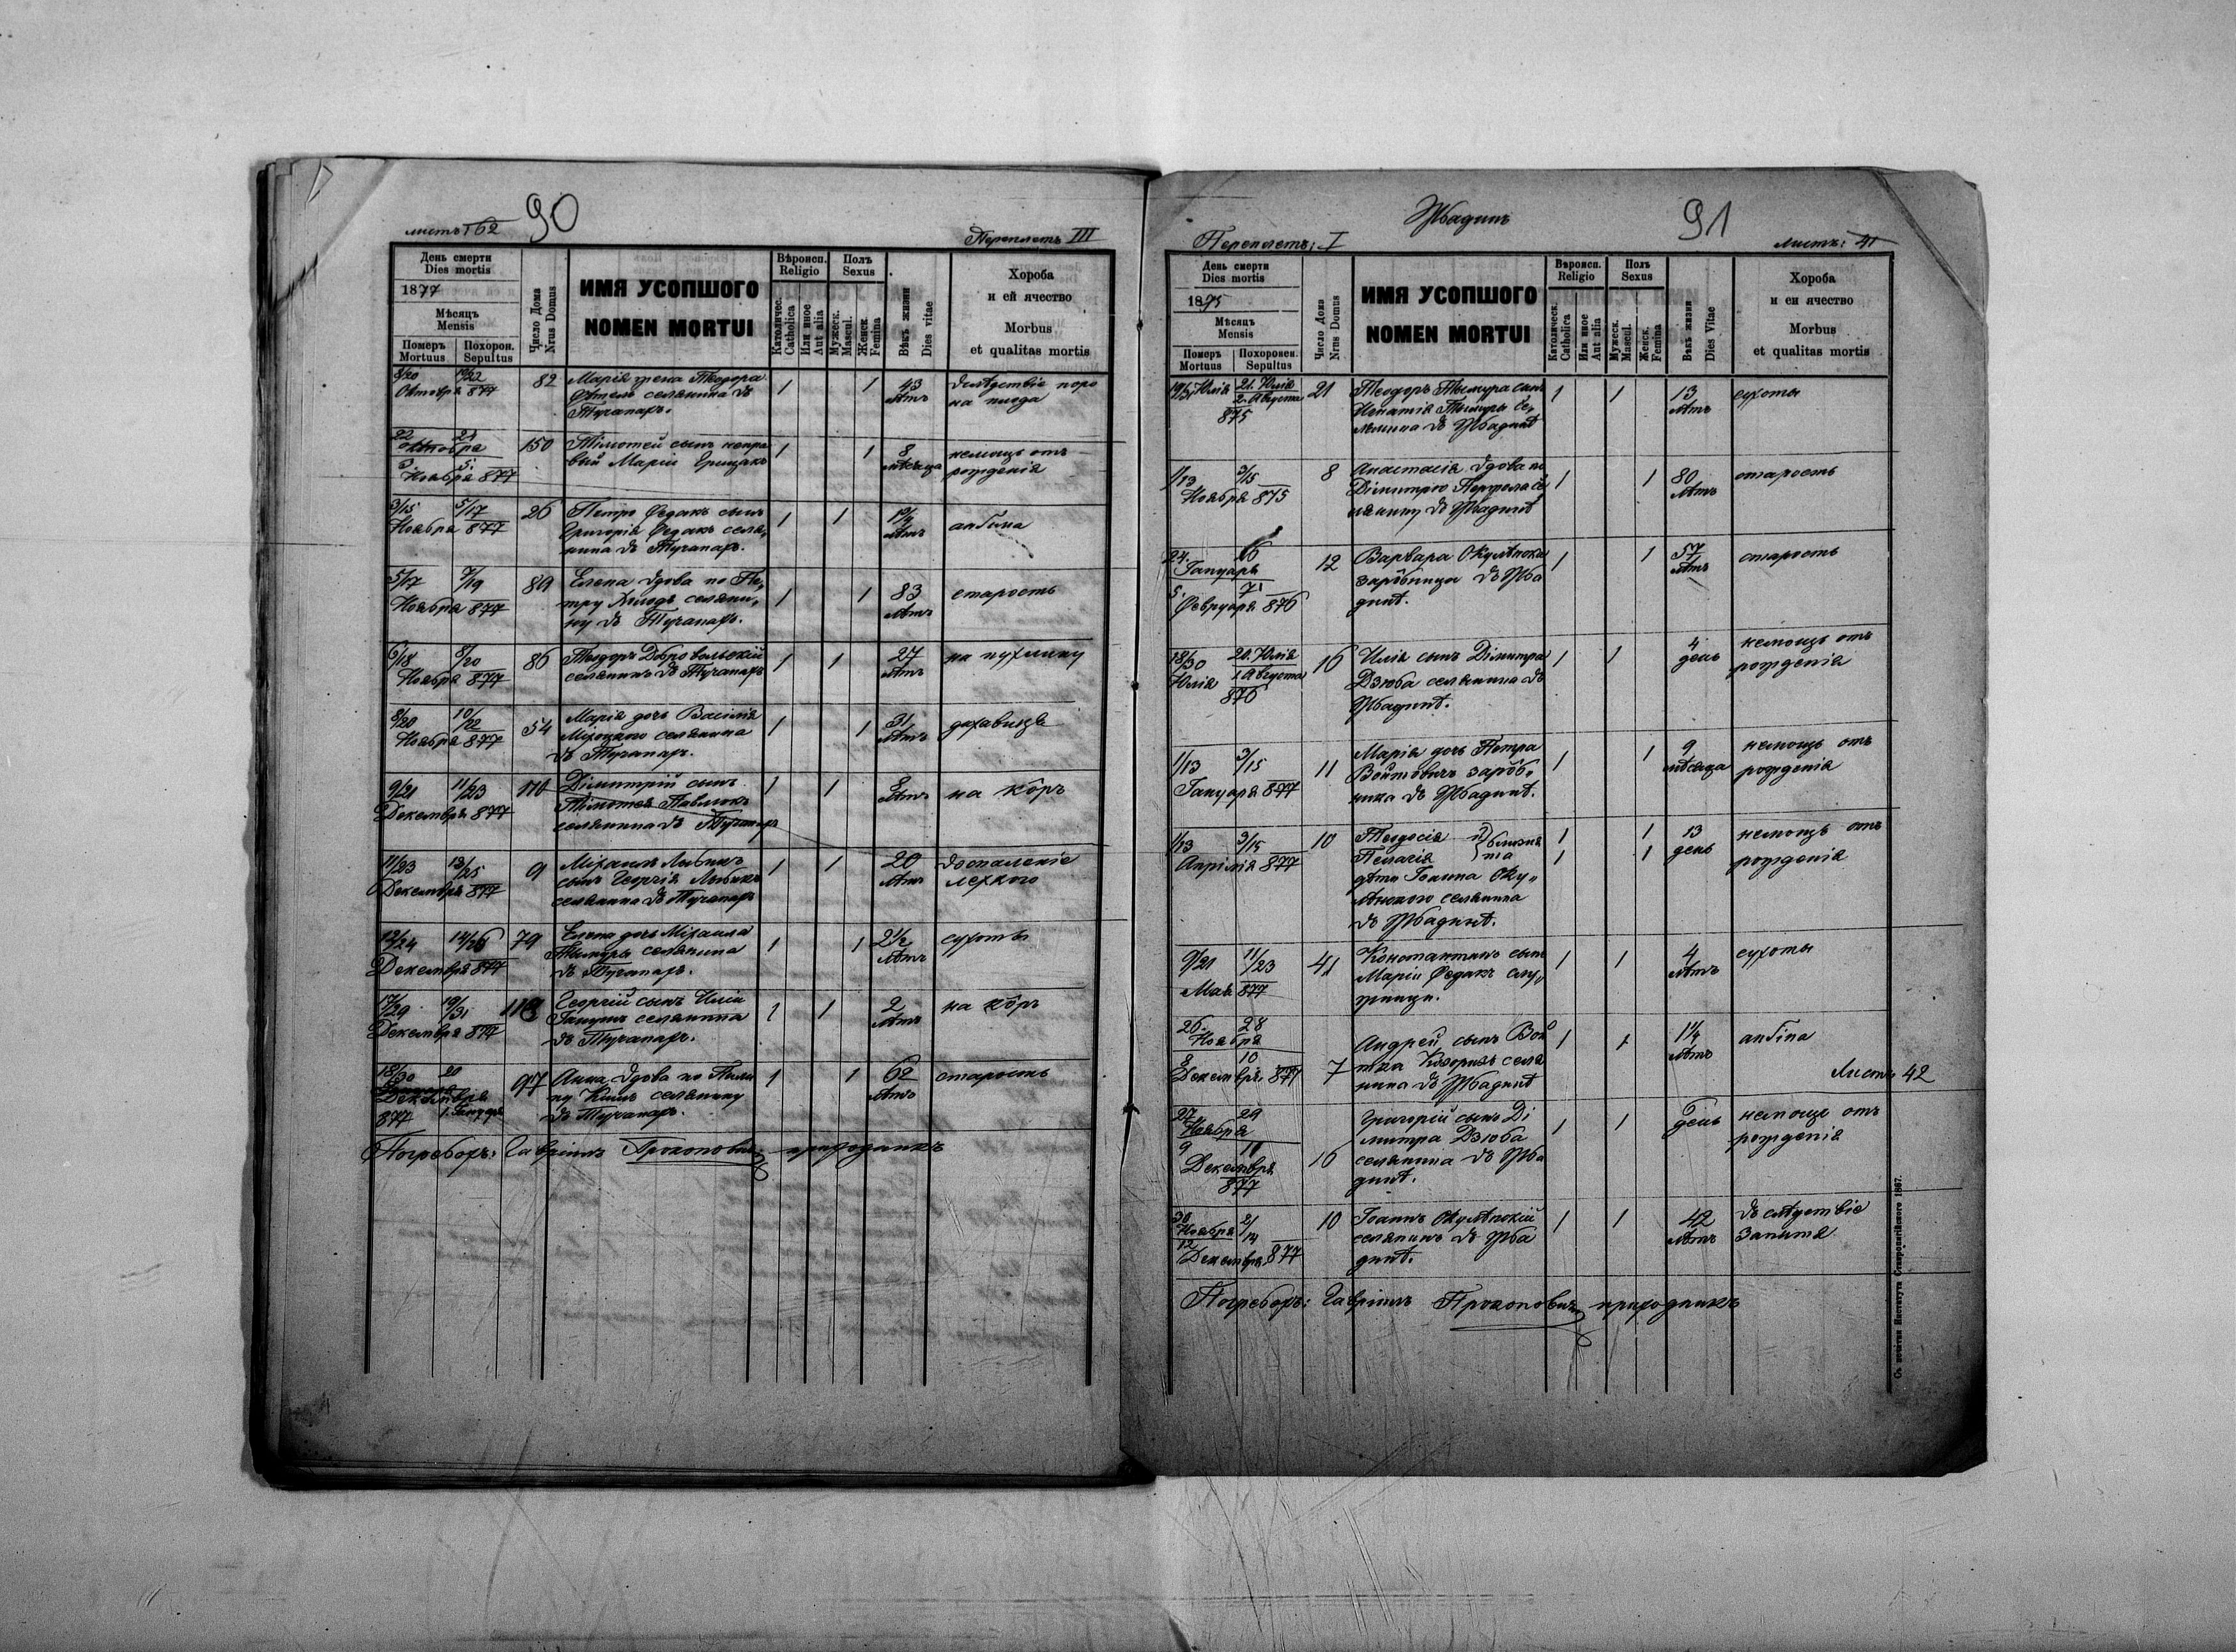 90
листъ 62
Переплетъ III
День смерти
Dies mortis
1877
Мѣсяцъ
Mensis
Померъ
Mortuus
Похорон.
Sepultus
Число Дома
Nrus Domus
ИМЯ УСОПШОГО
NOMEN MORTUI
Вѣроисп.
Religio
Католичес.
Catholica
Или иное
Aut alia
Полъ
Sexus
Мужеск.
Mascul.
Женск.
Femina
Вѣкъ жизни
Dies vitae
Хороба
и ей ячество
Morbus
et qualitas mortis
8/20 10/22
Октобра 877
82
Марія жена Теодора
селянина въ
Тучапахъ.
1 1
43
лѣтъ
вслѣдствіе поро
на плода
22 24
Октобра
3 5
Ноября 877
150
Тімотей сынъ непра
вый Маріи Грицакъ
1 1
8
мѣсяца
немощь отъ
рожденія
3/15 5/17
Ноября 877
26
Петро Федакъ сынъ
Григорія Федакъ селя„
нина въ Тучапахъ.
1 1
лѣтъ
ангина
5/17 7/19
Ноября 877
89
Елена вдова по Пе„
тру селяни„
ну въ Тучапахъ.
1 1
83
лѣтъ
старость
6/18 8/20
Ноября 877
86
Теодоръ Добровольскій
селянинъ въ Тучапахъ
1 1
27
лѣтъ
на пухлину
8/20 10/22
Ноября 877
54
Марія дочь Василія
селянина
въ Тучапахъ.
1 1
31
лѣтъ
дахавица
9/21 11/23
Декемврія 877
110
Димитрій сынъ
Тімотея Павлюкъ
селянина въ Тучапахъ
1 1
8
лѣтъ
на кôръ
11/23 13/25
Декемврія 877
9
Михаилъ
сынъ Георгія
селянина въ Тучапахъ
1 1
20
лѣтъ
возпаленіе
легкого
12/24 14/26
Декемврія 877
79
Елена дочь Михаила
Тымуры селянина
въ Тучапахъ.
1 1
2½
лѣтъ
сухоты
17/29 19/31
Декемврія 877
Георгій сынъ Иліи
селянина
въ Тучапахъ.
1 1
2
лѣтъ
на кôръ
18/30 20
Декемврія
877 1. Януаря
97
Анна вдова по
селянину
въ Тучапахъ.
1 1
62
лѣтъ
старость
Погребохъ: Гавріилъ Прокоповичъ приходникъ
Жбадинъ
91
Переплетъ: I
Листъ: 41
День смерти
Dies mortis
1875
Мѣсяцъ
Mensis
Померъ
Mortuus
Похоронен.
Sepultus
Число Дома
Nrus Domus
ИМЯ УСОПШОГО
NOMEN MORTUI
Вѣроисп.
Religio
Католическ.
Catholica
Или иное
Aut alia
Полъ
Sexus
Мужеск.
Mascul.
Женск.
Femina
Вѣкъ жизни
Dies Vitae
Хороба
и еи ячество
Morbus
et qualitas mortis
19/31 Юлія 21. Юлія
2. Августа
875
21
Теодоръ Тымура сынъ
Игнатія Тымуры се„
лянина въ Жбадинѣ
1 1
13
лѣтъ
сухоты
1/13 3/15
Ноября 875
8
Анастасія вдова по
Димитрію се
лянину въ Жбадинѣ
1 1
80
лѣтъ
старость
24. 26
Януаря
5. 7.
Февруаря 876
12
Варвара Окулѣнска
зарôбница въ Жба
динѣ.
1 1
57
лѣтъ
старость
18/30 20. Юлія
Юлія 1 Августа
876
16
Илія сынъ Димитра
Дзюба селянина въ
Жбадинѣ.
1 1
4
день
немощь отъ
рожденія
1/13 3/15
Януаря 877
11
Марія дочь Петра
Войтовичъ зарôб„
ника въ Жбадинѣ.
1 1
9
мѣсяца
немощь отъ
рожденія
1/13 3/15
Апрілія 877
10
Теодосія и близня
Пелагія та
дѣти Іоанна Оку„
лѣнского селянина
въ Жбадинѣ.
1 1
1 1
13
день
немощь отъ
рожденія
9/21 11/23
Мая 877
41
Константинъ сынъ
Маріи Федакъ слу„
жници.
1 1
4
лѣтъ
сухоты
26. 28
Ноября
8 10
Декемврія 877
7
Андрей сынъ Вой
тка селя
нина въ Жбадинѣ
1 1
1¼
лѣтъ
ангіна
Листъ 42
27. 29
Ноября
9 11
Декемврія
877
16
Григорій сынъ Ді
митра Дзюба
селянина въ Жба
динѣ.
1 1
день
немощь отъ
рожденія
30 2/14
Ноября
12
Декемврія 877
10
Іоаннъ Окулѣнскій
селянинъ въ Жба
динѣ.
1 1
42
лѣтъ
вслѣдствіе
запитя
Погребохъ: Гавріилъ Прокоповичъ приходникъ
Съ печатни Института Ставропигійского 1867.